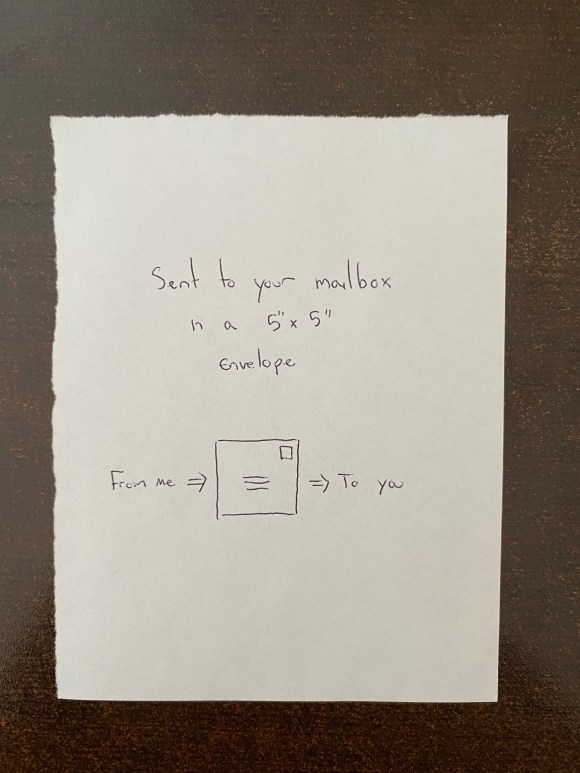 Sent to your mailbox
in a 5" x 5"
Envelope
From me ⇒ ⇒ To you